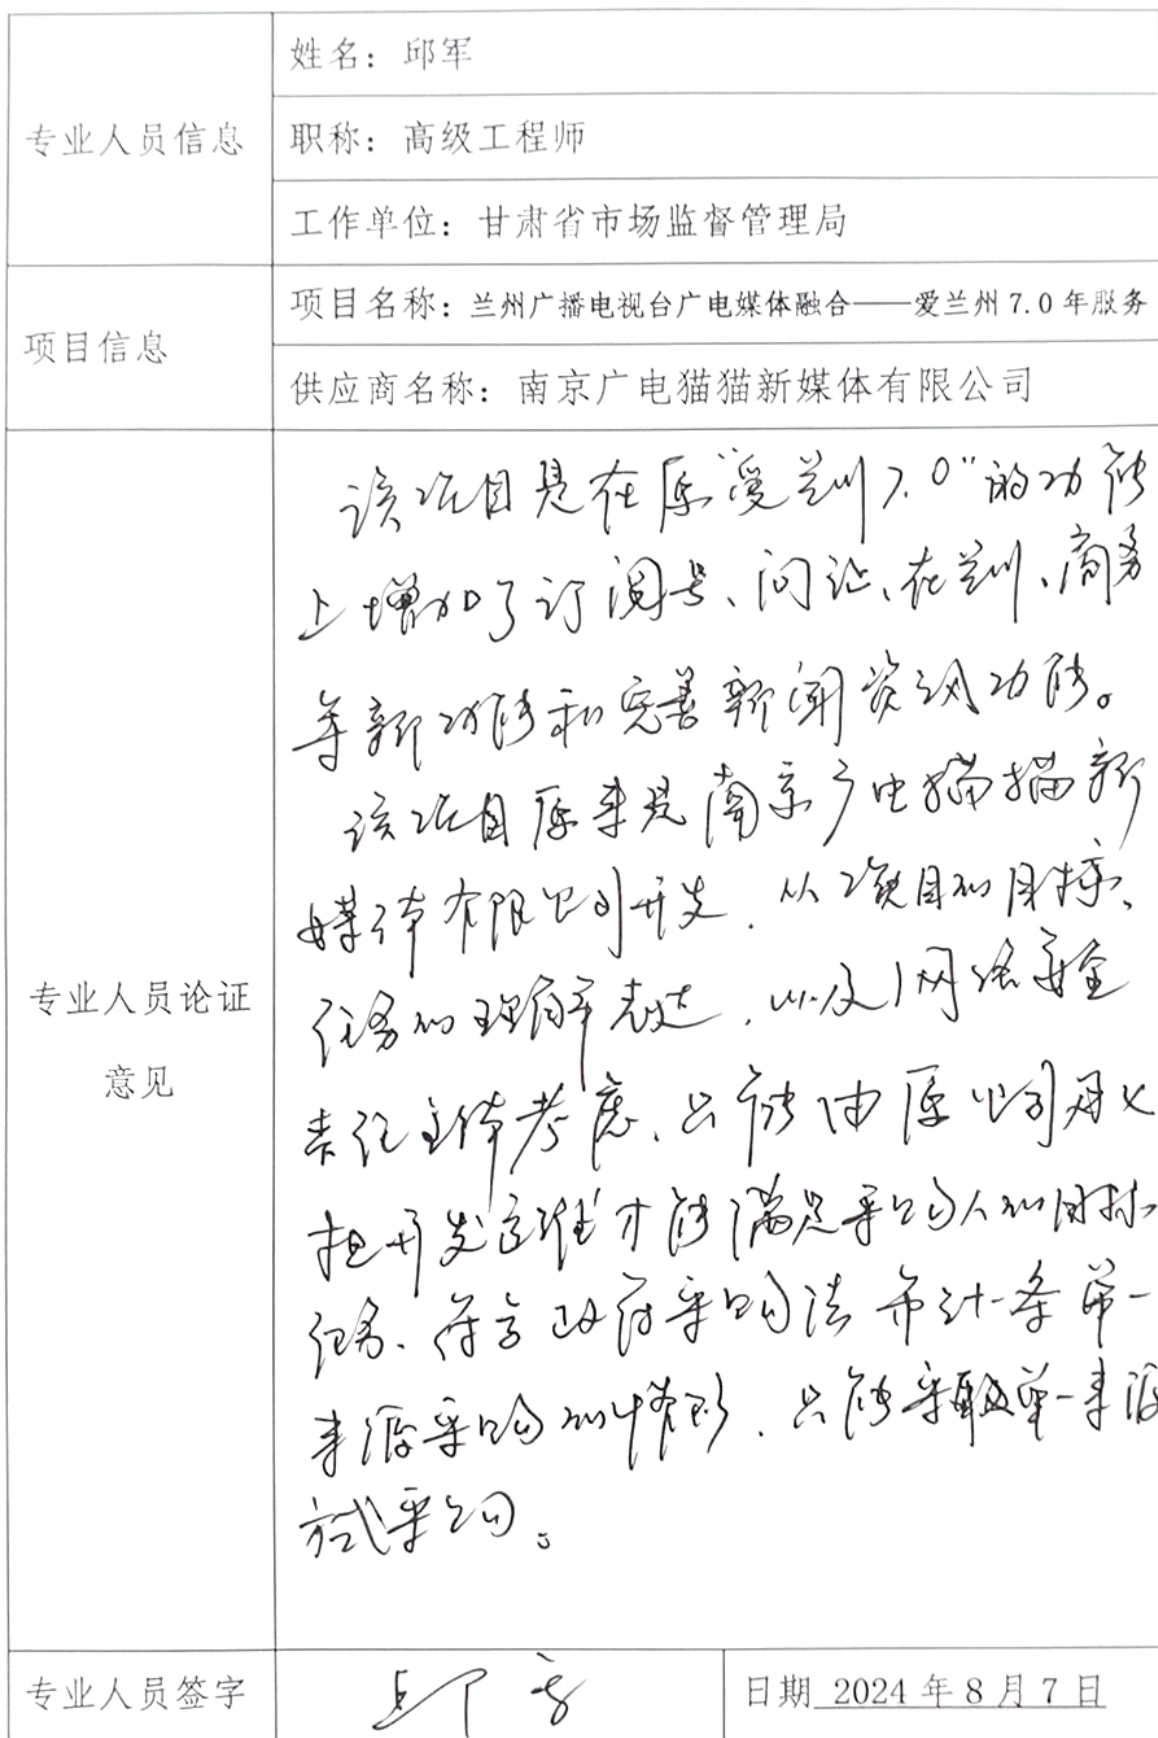 专业人员信息
姓名：邱军
职称：高级工程师
工作单位：甘肃省市场监督管理局
项目信息
项目名称：兰州广播电视台广电媒体融合——爱兰州7.0年服务
供应商名称：南京广电猫猫新媒体有限公司
专业人员论证
意见
该项目是在原“爱兰州7.0”的功能
上增加了订阅号、问证、在兰州、商务
等新功能和完善新闻资讯功能。
该项目原来是南京广电猫猫新
媒体有限公司开发，从项目的目标、
任务的理解表达，以及网络安全
责任主体考虑，只能由原公司承
担开发运维才能满足采购人的目标
任务、符合政府采购法第卅一条单一
来源采购的情形，只能采取单一来源
方式采购。
专业人员签字
邱军
日期 2024年8月7日